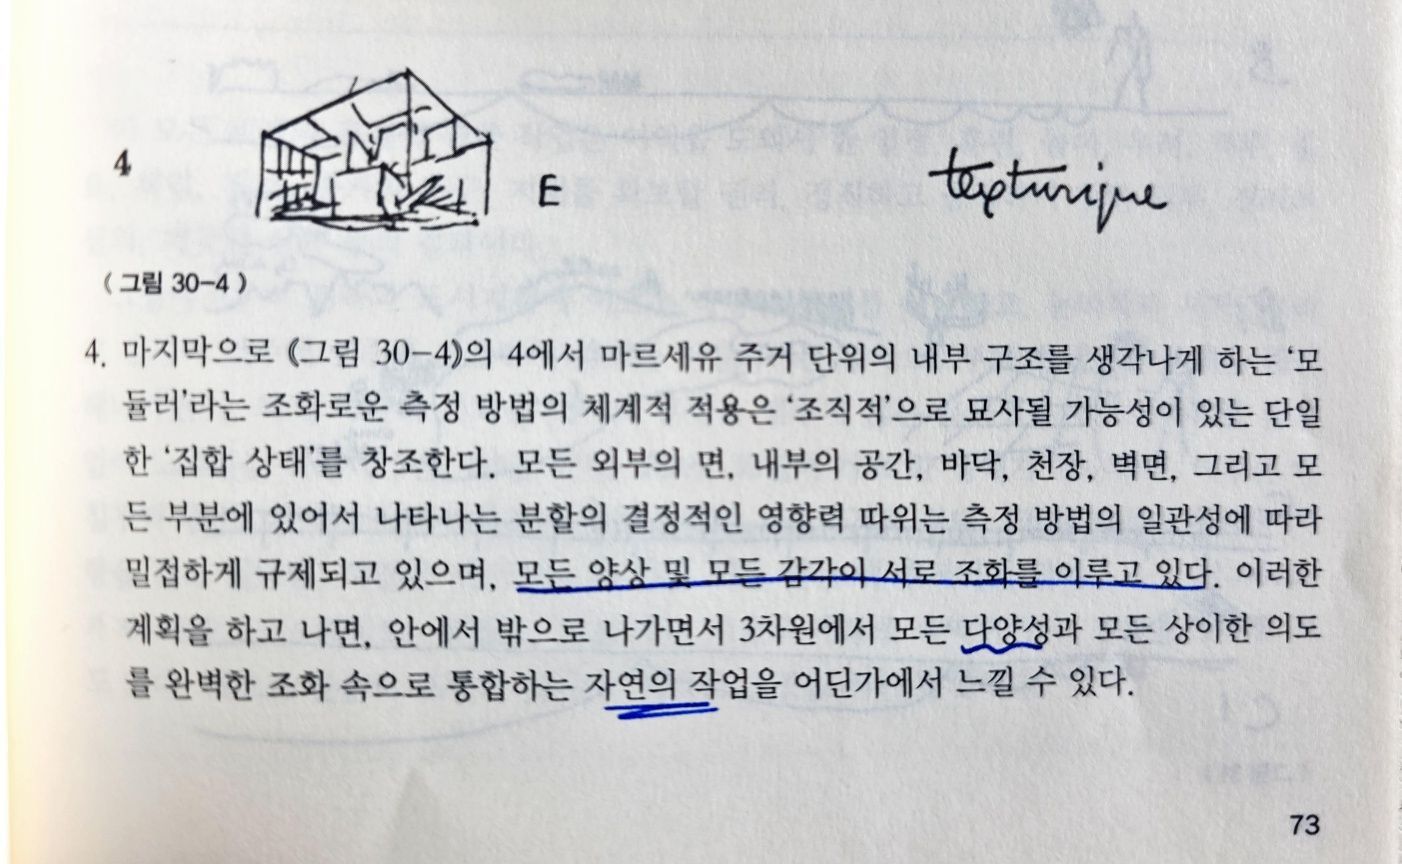 4
E
texturique
(그림 30-4)
4. 마지막으로 《그림 30-4》의 4에서 마르세유 주거 단위의 내부 구조를 생각나게 하는 ‘모
듈러’라는 조화로운 측정 방법의 체계적 적용은 ‘조직적’으로 묘사될 가능성이 있는 단일
한 ‘집합 상태’를 창조한다. 모든 외부의 면, 내부의 공간, 바닥, 천장, 벽면, 그리고 모
든 부분에 있어서 나타나는 분할의 결정적인 영향력 따위는 측정 방법의 일관성에 따라
밀접하게 규제되고 있으며, 모든 양상 및 모든 감각이 서로 조화를 이루고 있다. 이러한
계획을 하고 나면, 안에서 밖으로 나가면서 3차원에서 모든 다양성과 모든 상이한 의도
를 완벽한 조화 속으로 통합하는 자연의 작업을 어딘가에서 느낄 수 있다.
73